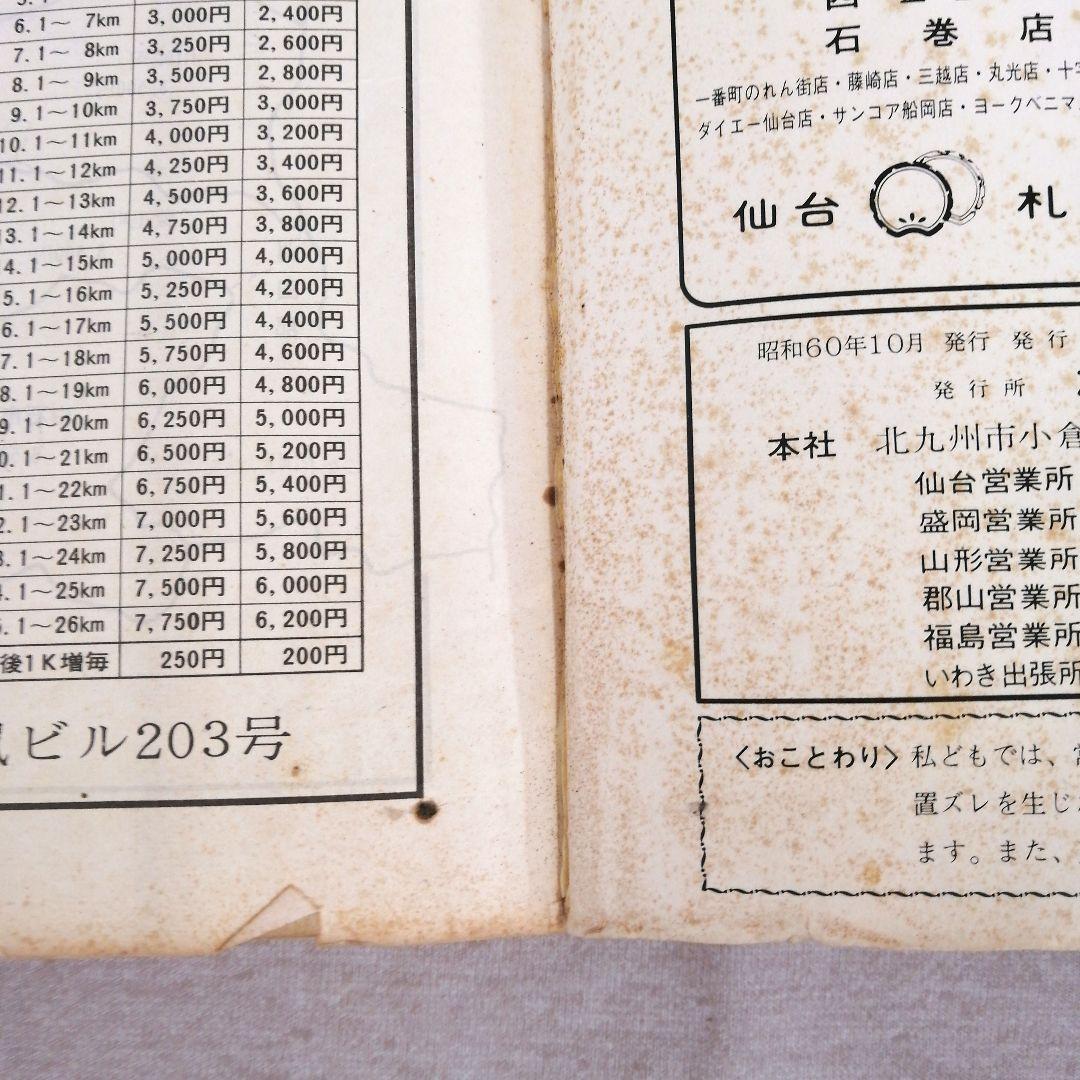 6.1～ 7km 3,000円 2,400円
7.1～ 8km 3,250円 2,600円
8.1～ 9km 3,500円 2,800円
9.1～10km 3,750円 3,000円
10.1～11km 4,000円 3,200円
11.1～12km 4,250円 3,400円
12.1～13km 4,500円 3,600円
13.1～14km 4,750円 3,800円
4.1～15km 5,000円 4,000円
5.1～16km 5,250円 4,200円
6.1～17km 5,500円 4,400円
7.1～18km 5,750円 4,600円
8.1～19km 6,000円 4,800円
9.1～20km 6,250円 5,000円
0.1～21km 6,500円 5,200円
1.1～22km 6,750円 5,400円
2.1～23km 7,000円 5,600円
3.1～24km 7,250円 5,800円
.1～25km 7,500円 6,000円
.1～26km 7,750円 6,200円
後1K増毎 250円 200円
ビル203号
石巻店
一番町のれん街店・藤崎店・三越店・丸光店・十字
ダイエー仙台店・サンコア船岡店・ヨークベニマ
仙台 札
昭和60年10月 発行 発行
発行所
本社 北九州市小倉
仙台営業所
盛岡営業所
山形営業所
郡山営業所
福島営業所
いわき出張所
〈おことわり〉私どもでは、
置ズレを生じ
ます。また、